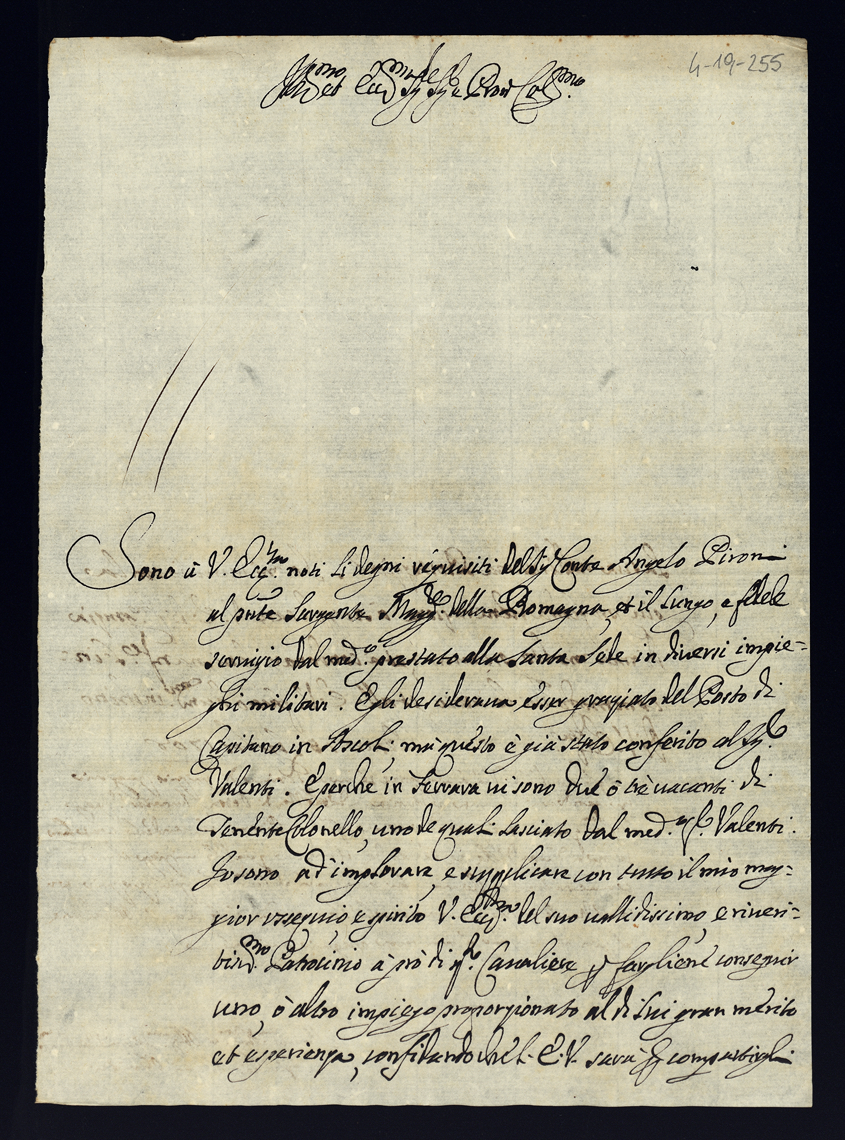 4-19-255
Ill.mo et Ecc.mo Sig.r Sig.r e Pron Col.mo
Sono à V. Ecc.za noti li degni requisiti del Sig.r Conte Angelo Pironi
al pnte Sargente Magg.re della Romagna, et il lungo, e fedele
servigio dal med.o prestato alla Santa Sede in diversi impie=
ghi militari. Egli desiderava esser graziato del Posto di
Capitano in Ascoli; mà questo è già stato conferito al Sig.r
Valenti. E perche in Ferrara vi sono due ò trè vacanti di
Tenente Colonello, uno de quali lasciato dal med. Valenti.
Io sono ad implorare, e supplicare con tutto il mio mag=
gior ossequio, e spirito V. Ecc.za del suo vallidissimo, e riveri=
tiss.mo Patrocinio à prò di q.to Cavaliere p fargliene conseguir
uno, ò altro impiego proporzionato al di lui gran merito
et esperienza, confidando che l'E.V. sarà p compartirgli